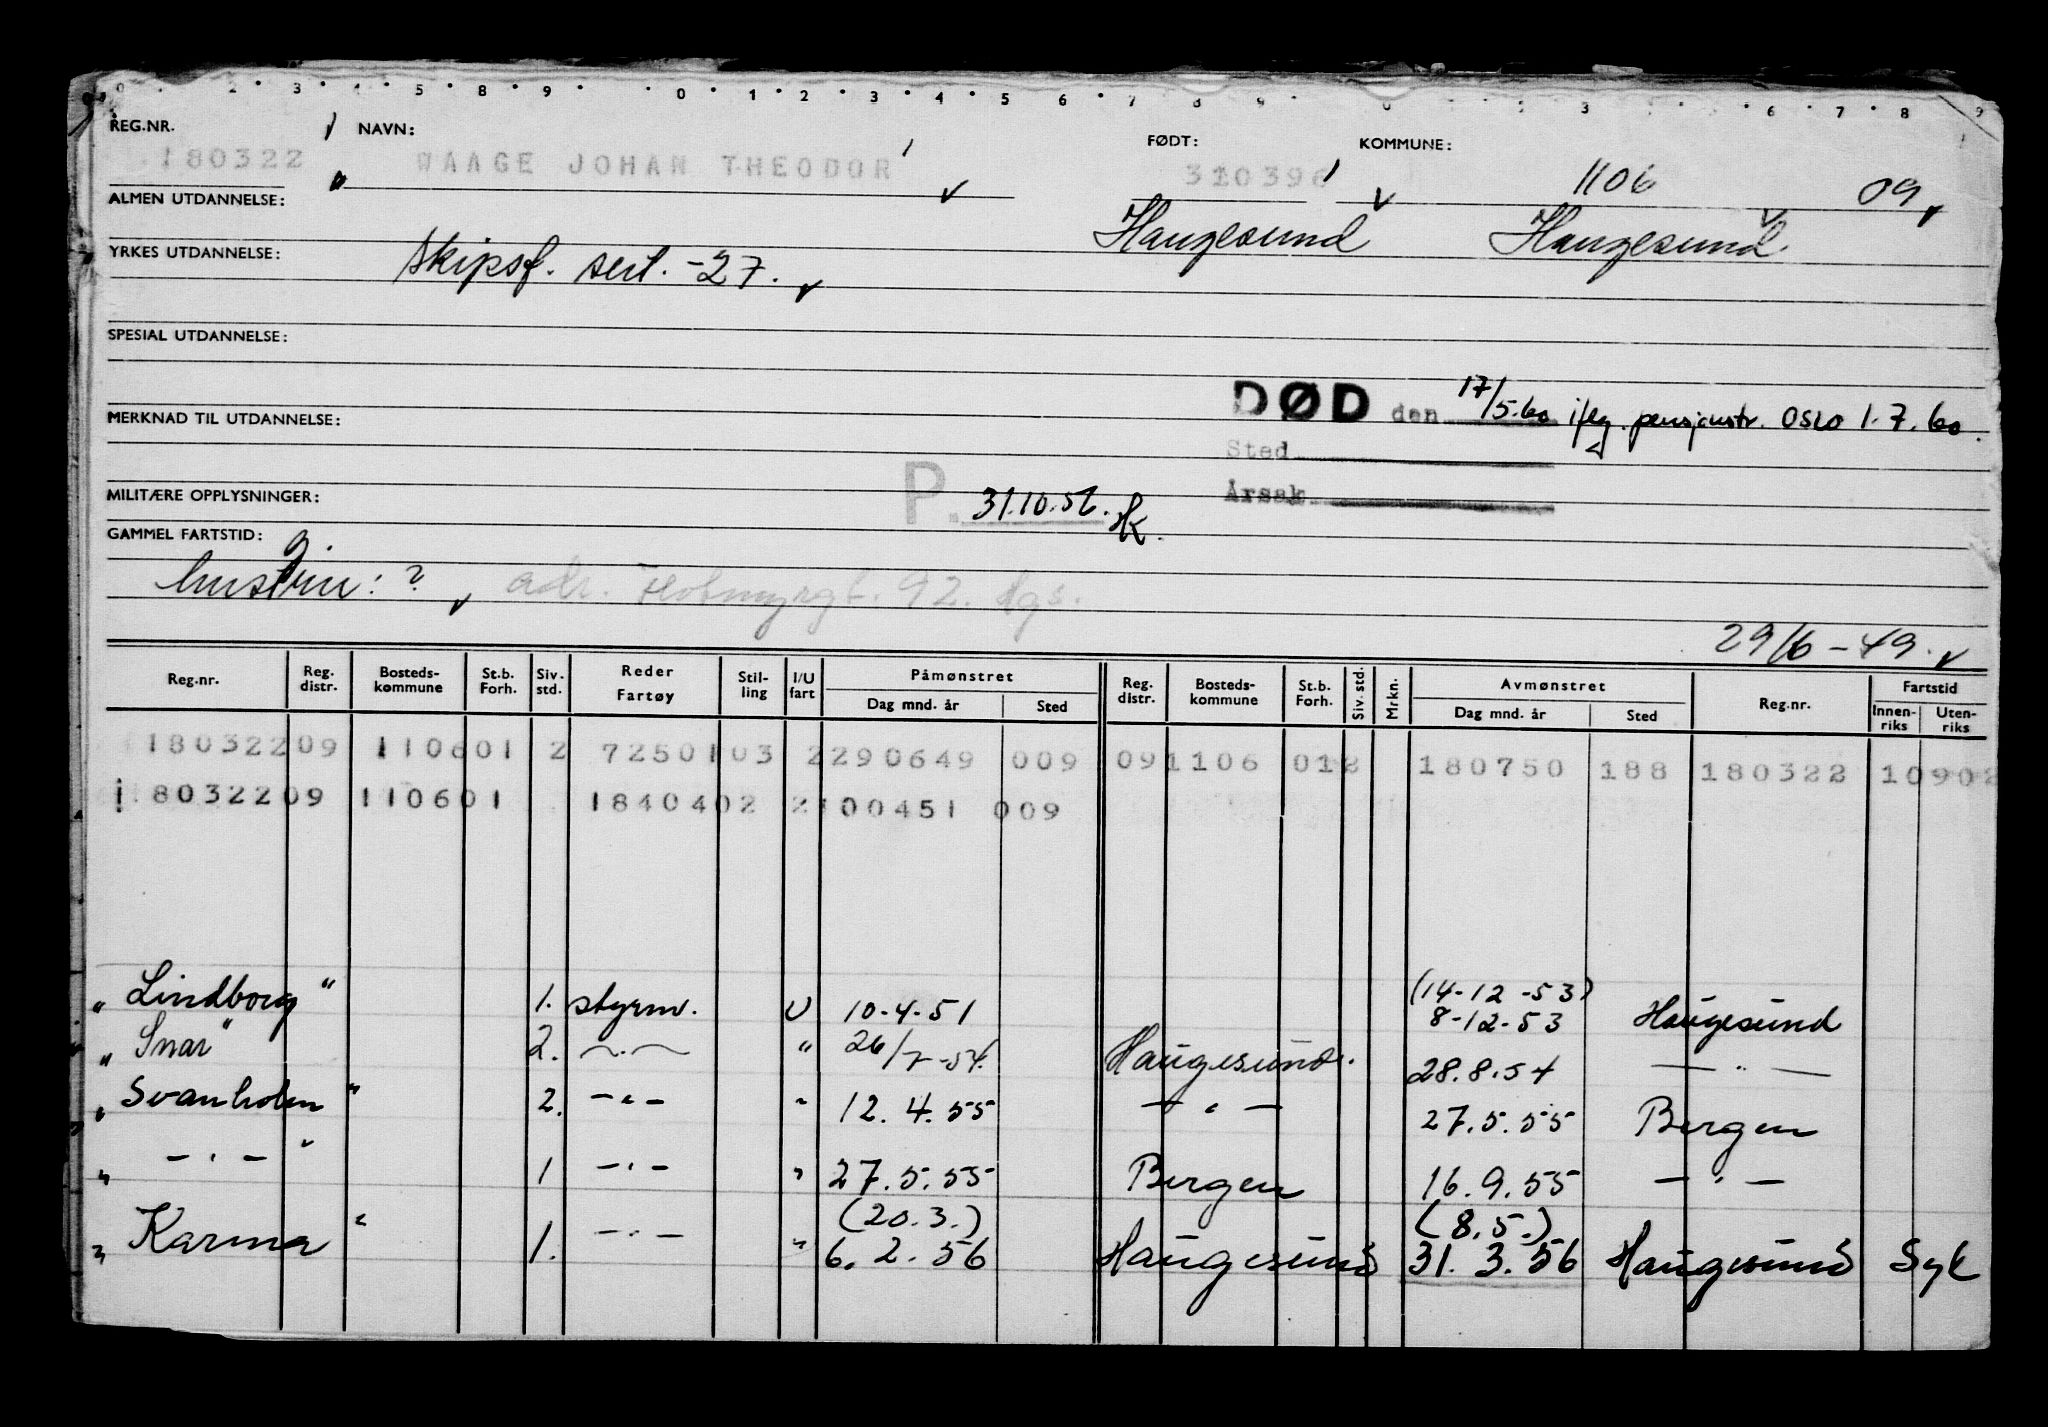 0 2 3 4 5 8 9 0 1 2 3 4 5 6 7 8 9 0 3 6 7 8 9
REG.NR. NAVN: FØDT: KOMMUNE:
180322 WAAGE JOHAN THEODOR 310396 1106 09
ALMEN UTDANNELSE: Haugesund Haugesund.
YRKES UTDANNELSE: Skipsf. sert. -27.
SPESIAL UTDANNELSE:
DØD den 17/5.60 iflg. pensjonstr. Oslo 1.7.60.
MERKNAD TIL UTDANNELSE:
Sted
P. 31.10.56. HK.
Årsak
MILITÆRE OPPLYSNINGER:
GAMMEL FARTSTID:
g.
hustru: ? adr. Flotmyrgt. 92. Hgs.
29/6-49.
Reg.nr. Reg. distr. Bosteds-kommune St.b. Forh. Siv. std. Reder Fartøy Stil-ling I/U fart Påmønstret Dag mnd. år Sted Reg. distr. Bosteds-kommune St.b. Forh. Siv. std. Mrkn. Avmønstret Dag mnd. år Sted Reg.nr. Fartstid Innen-riks Uten-riks
180322 09 1106 01 2 7250103 2 290649 009 09 1106 01 2 180750 188 180322 10902
180322 09 1106 01 1840402 2 100451 009
"Lindborg" 1. styrm. U 10-4-51 (14-12-53) 8-12-53 Haugesund
"Snar" 2. —·— " 26/7-54. Haugesund. 28.8.54 — " —
"Svanholm" 2. — " — " 12.4.55 — " — 27.5.55 Bergen
" — " — " 1 — " — " 27.5.55 Bergen 16.9.55 — " —
(20.3.) (8.5.)
"Karma" 1. — " — " 6.2.56 Haugesund 31.3.56 Haugesund Syk